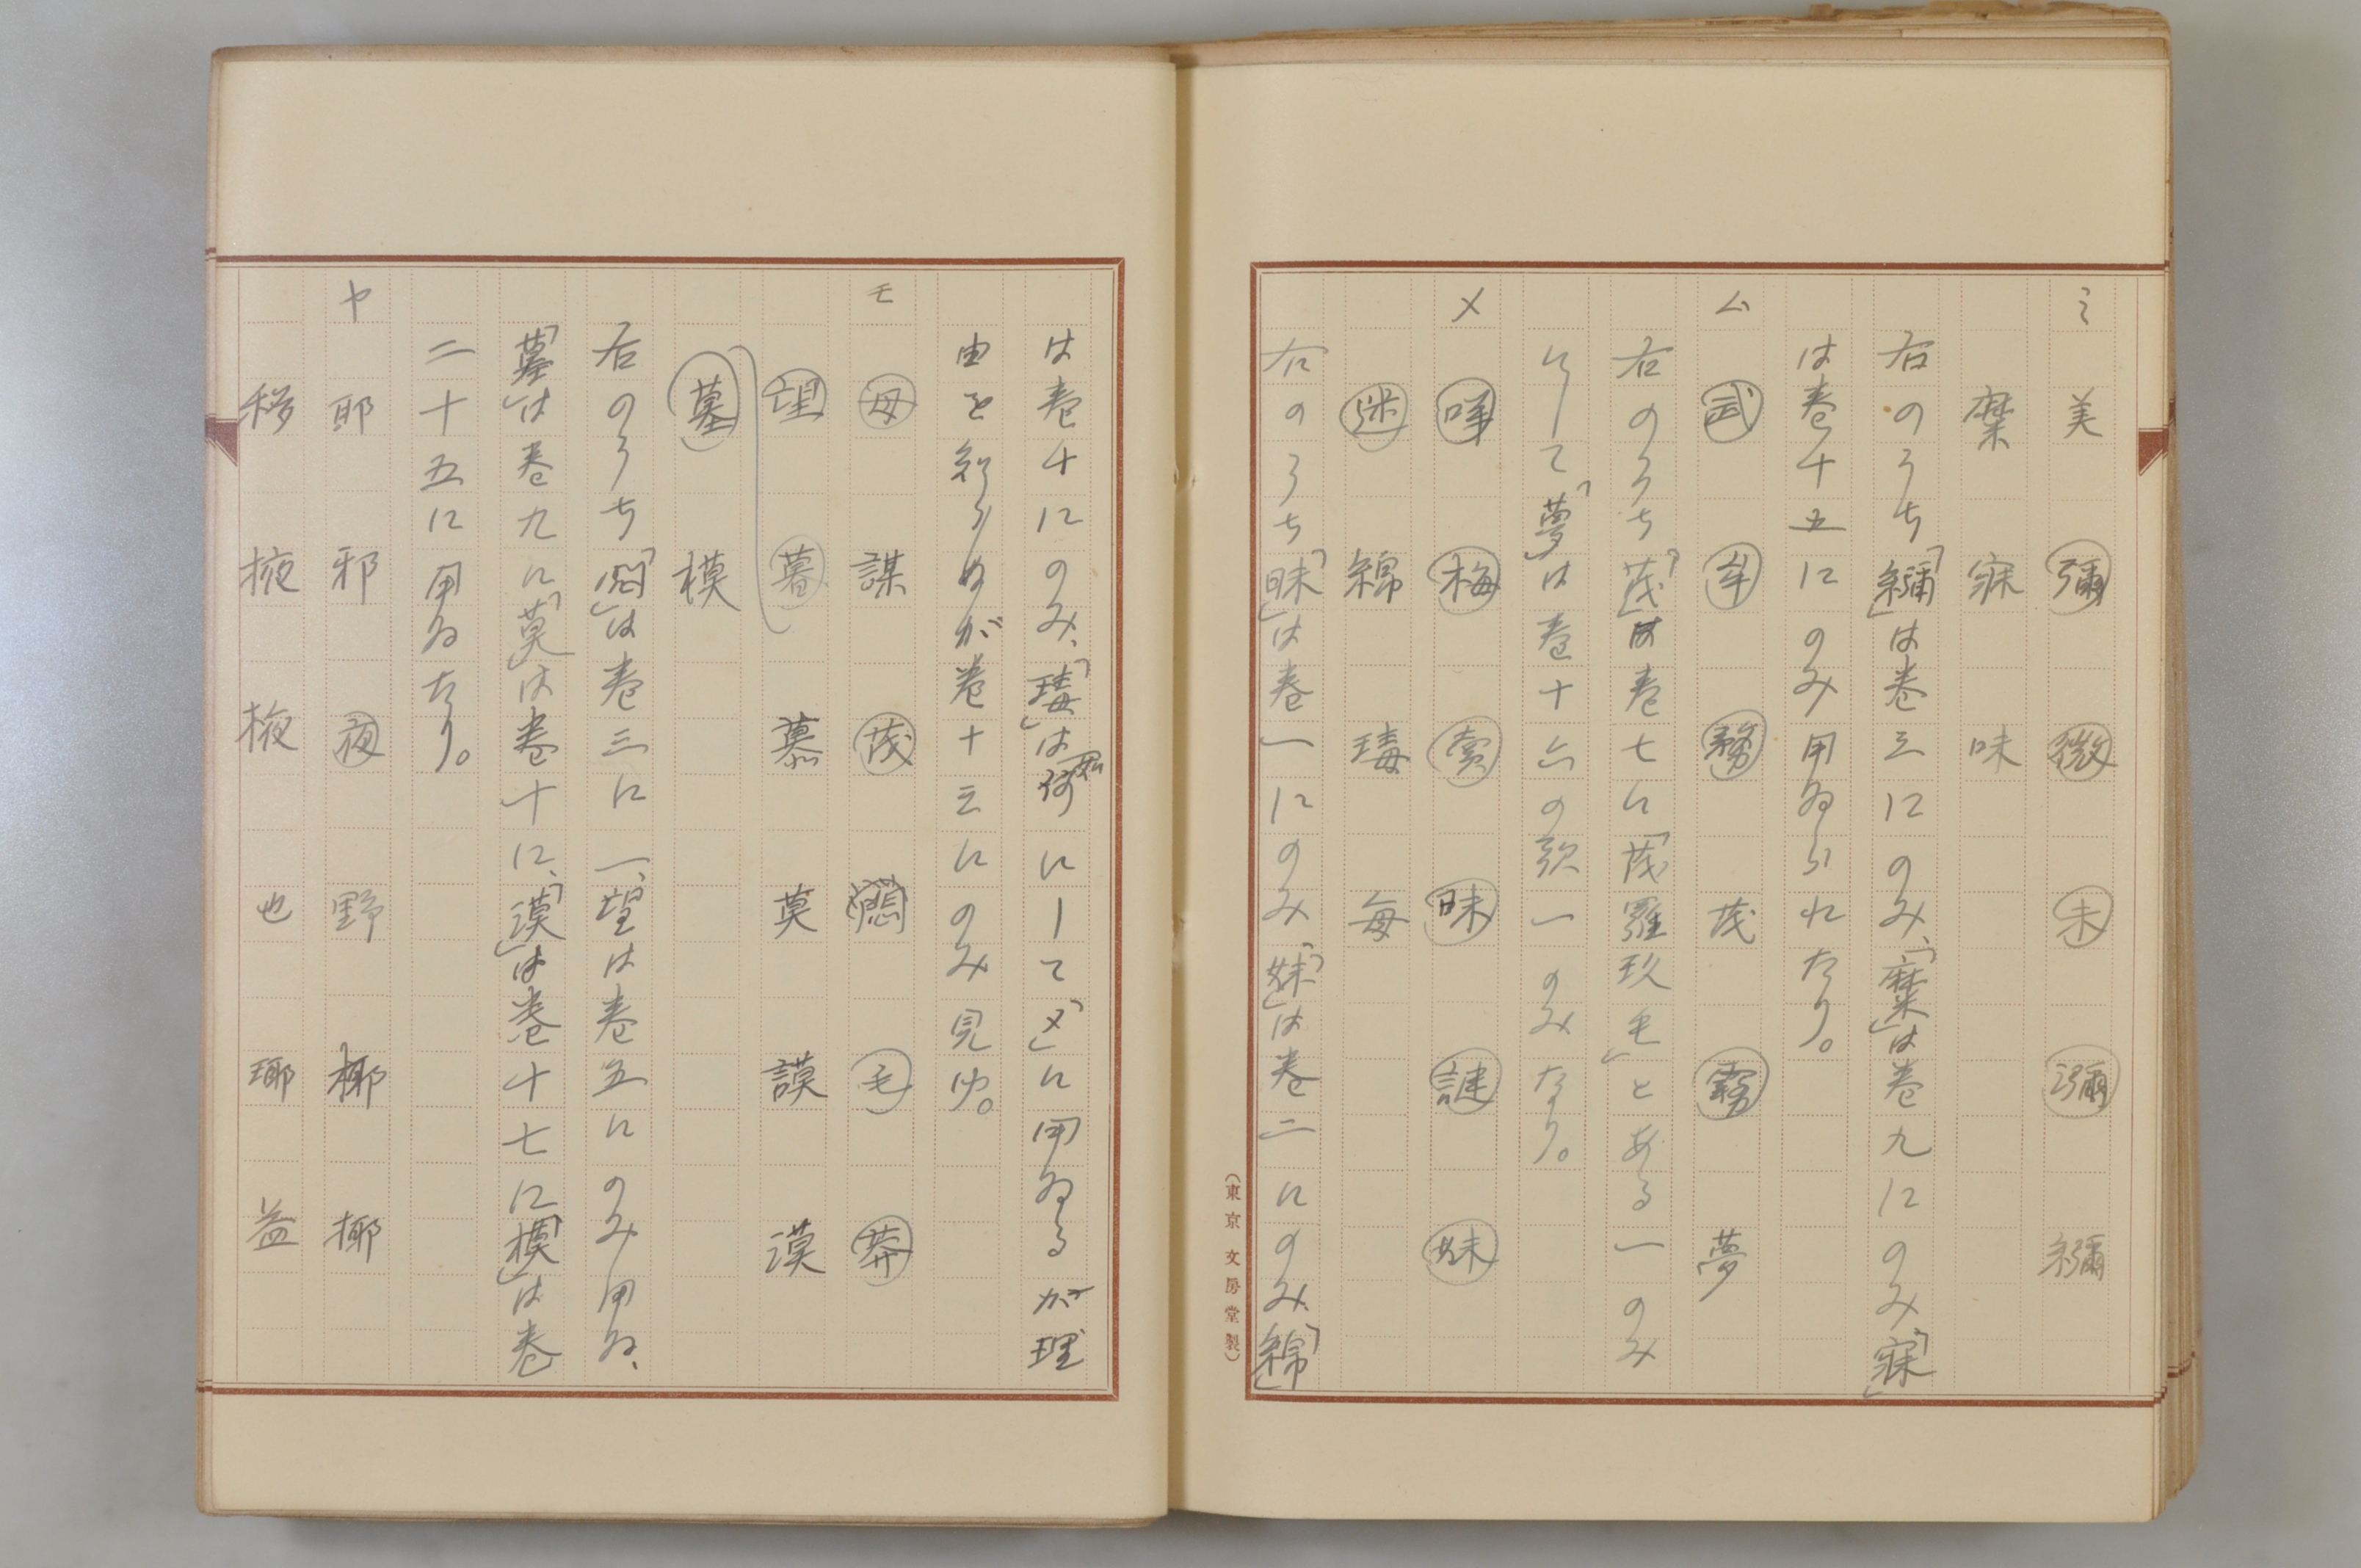 ミ
美 彌 微 未 瀰 禰
糜 寐 味
右のうち「禰」は巻三にのみ、「糜」は巻九にのみ、「寐」
は巻十五にのみ用ゐられたり。
ム
武 牟 務 茂 霧 夢
右のうち「茂」は巻七に「茂羅玖毛」とある一のみ
にして「夢」は巻十六の歌一のみなり。
メ
咩 梅 賣 昧 謎 妹
迷 綿 瑇 毎
右のうち「昧」は巻一にのみ「妹」は巻二にのみ、「綿」
(東京 文房堂製)
は巻十にのみ、「瑇」は如何にして「メ」に用ゐるが理
由を知らぬが巻十三にのみ見ゆ。
モ
母 謀 茂 悶 毛 莽
望 暮 慕 莫 謨 漠
墓 模
右のうち「悶」は巻三に一、望は巻五にのみ用ゐ、
「墓」は巻九に「莫」は巻十に、「漠」は巻十七に「模」は巻
二十五に用ゐたり。
ヤ
耶 邪 夜 野 椰 揶
移 掖 棭 也 瑘 益